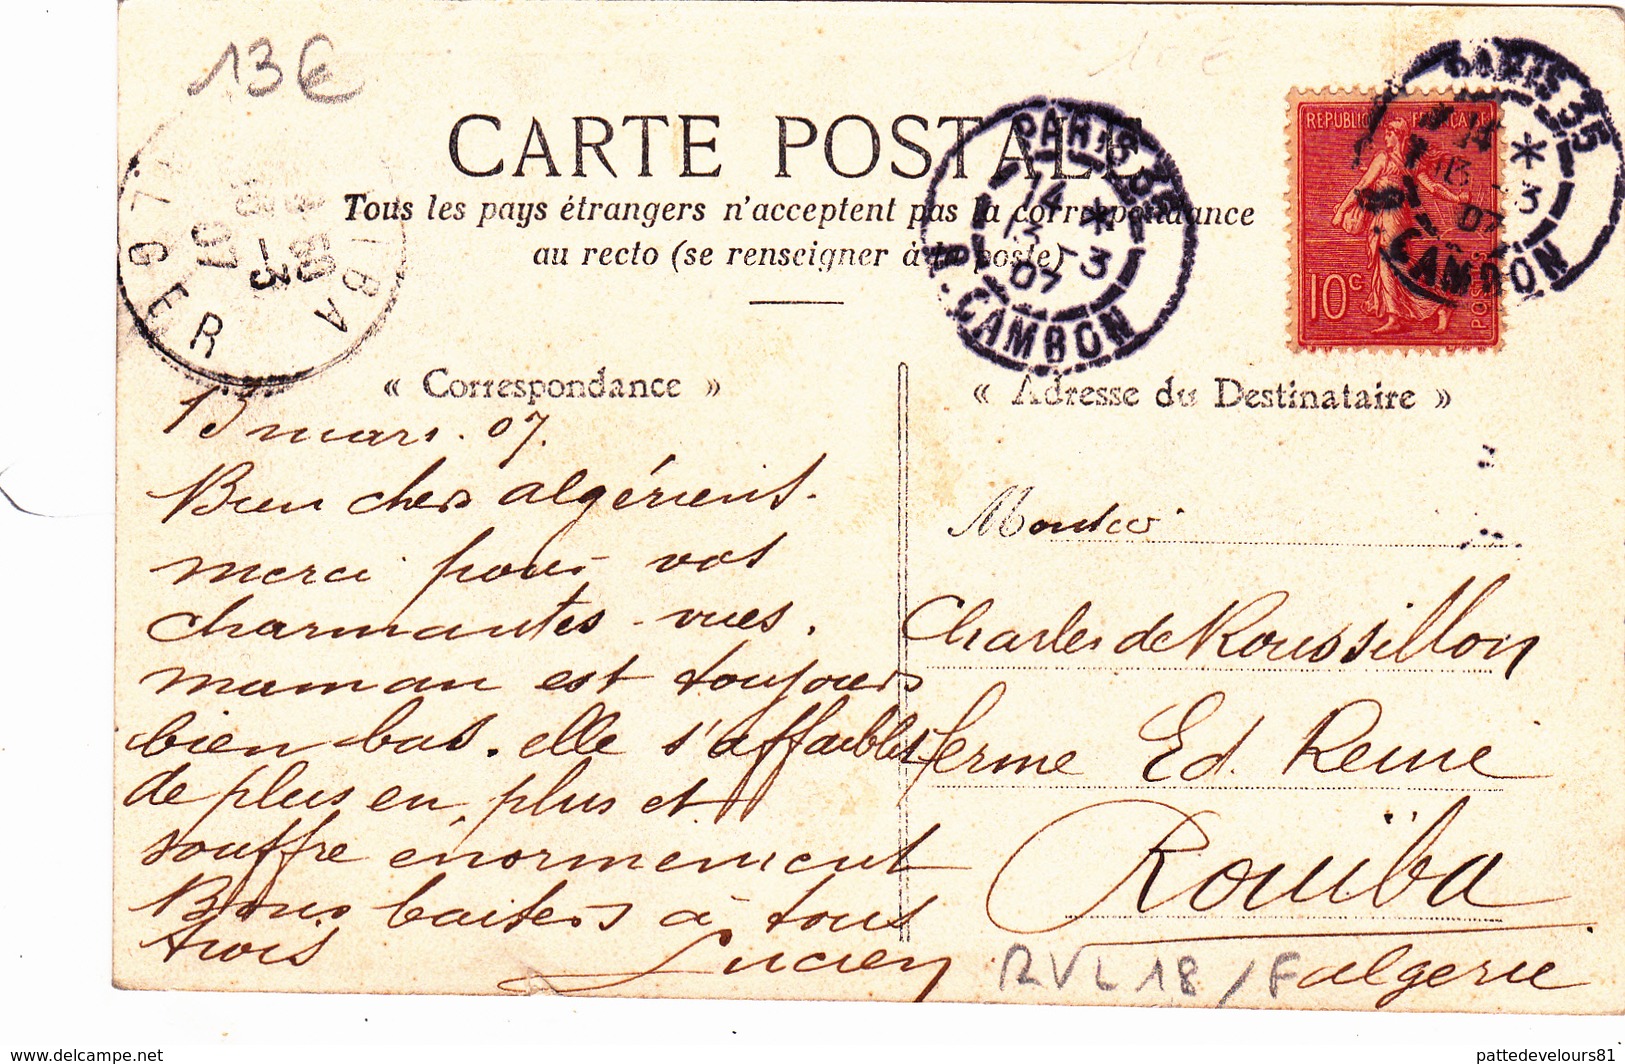 13€
CARTE POSTALE
Tous les pays étrangers n'acceptent pas la correspondance
au recto (se renseigner à la poste)
PARIS 35
14 *
13 -3
07
R. CAMBON
REPUBLIQUE FRANCAISE
10c
POSTES
PARIS 35
14 *
13 -3
07
R. CAMBON
ROUIBA
-3
07
ALGER
« Correspondance »
13 mars. 07.
Bien chers algériens.
merci pour vos
charmantes vues.
maman est toujours
bien bas. elle s'affaiblit
de plus en plus et
souffre énormement
Bons baisers à tous
trois
Lucien
« Adresse du Destinataire »
Monsieur
Charles de Roussillon
ferme Ed.
Rouïba
algerie
RVL 18 / F
www.delcampe.net
pattedevelours81